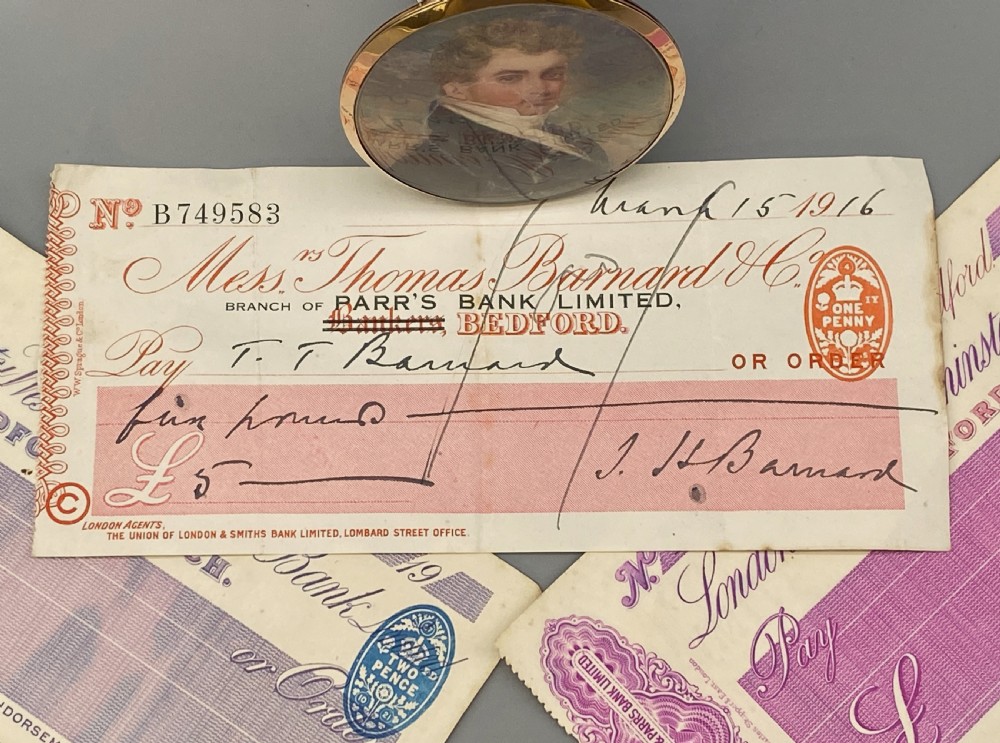 Nº B 749583
March 15 1916
Mess.rs Thomas Barnard & Co.
BRANCH OF PARR'S BANK LIMITED,
Bankers, BEDFORD.
ONE PENNY
Pay T. T Barnard OR ORDER
five pounds
£ 5
J. H Barnard
W.W. Sprague & Co. London.
C
LONDON AGENTS,
THE UNION OF LONDON & SMITHS BANK LIMITED, LOMBARD STREET OFFICE.
CH.
19
Bank
TWO PENCE
or Order
Nº
London
Pay
£
& PARRS BANK LIMITED